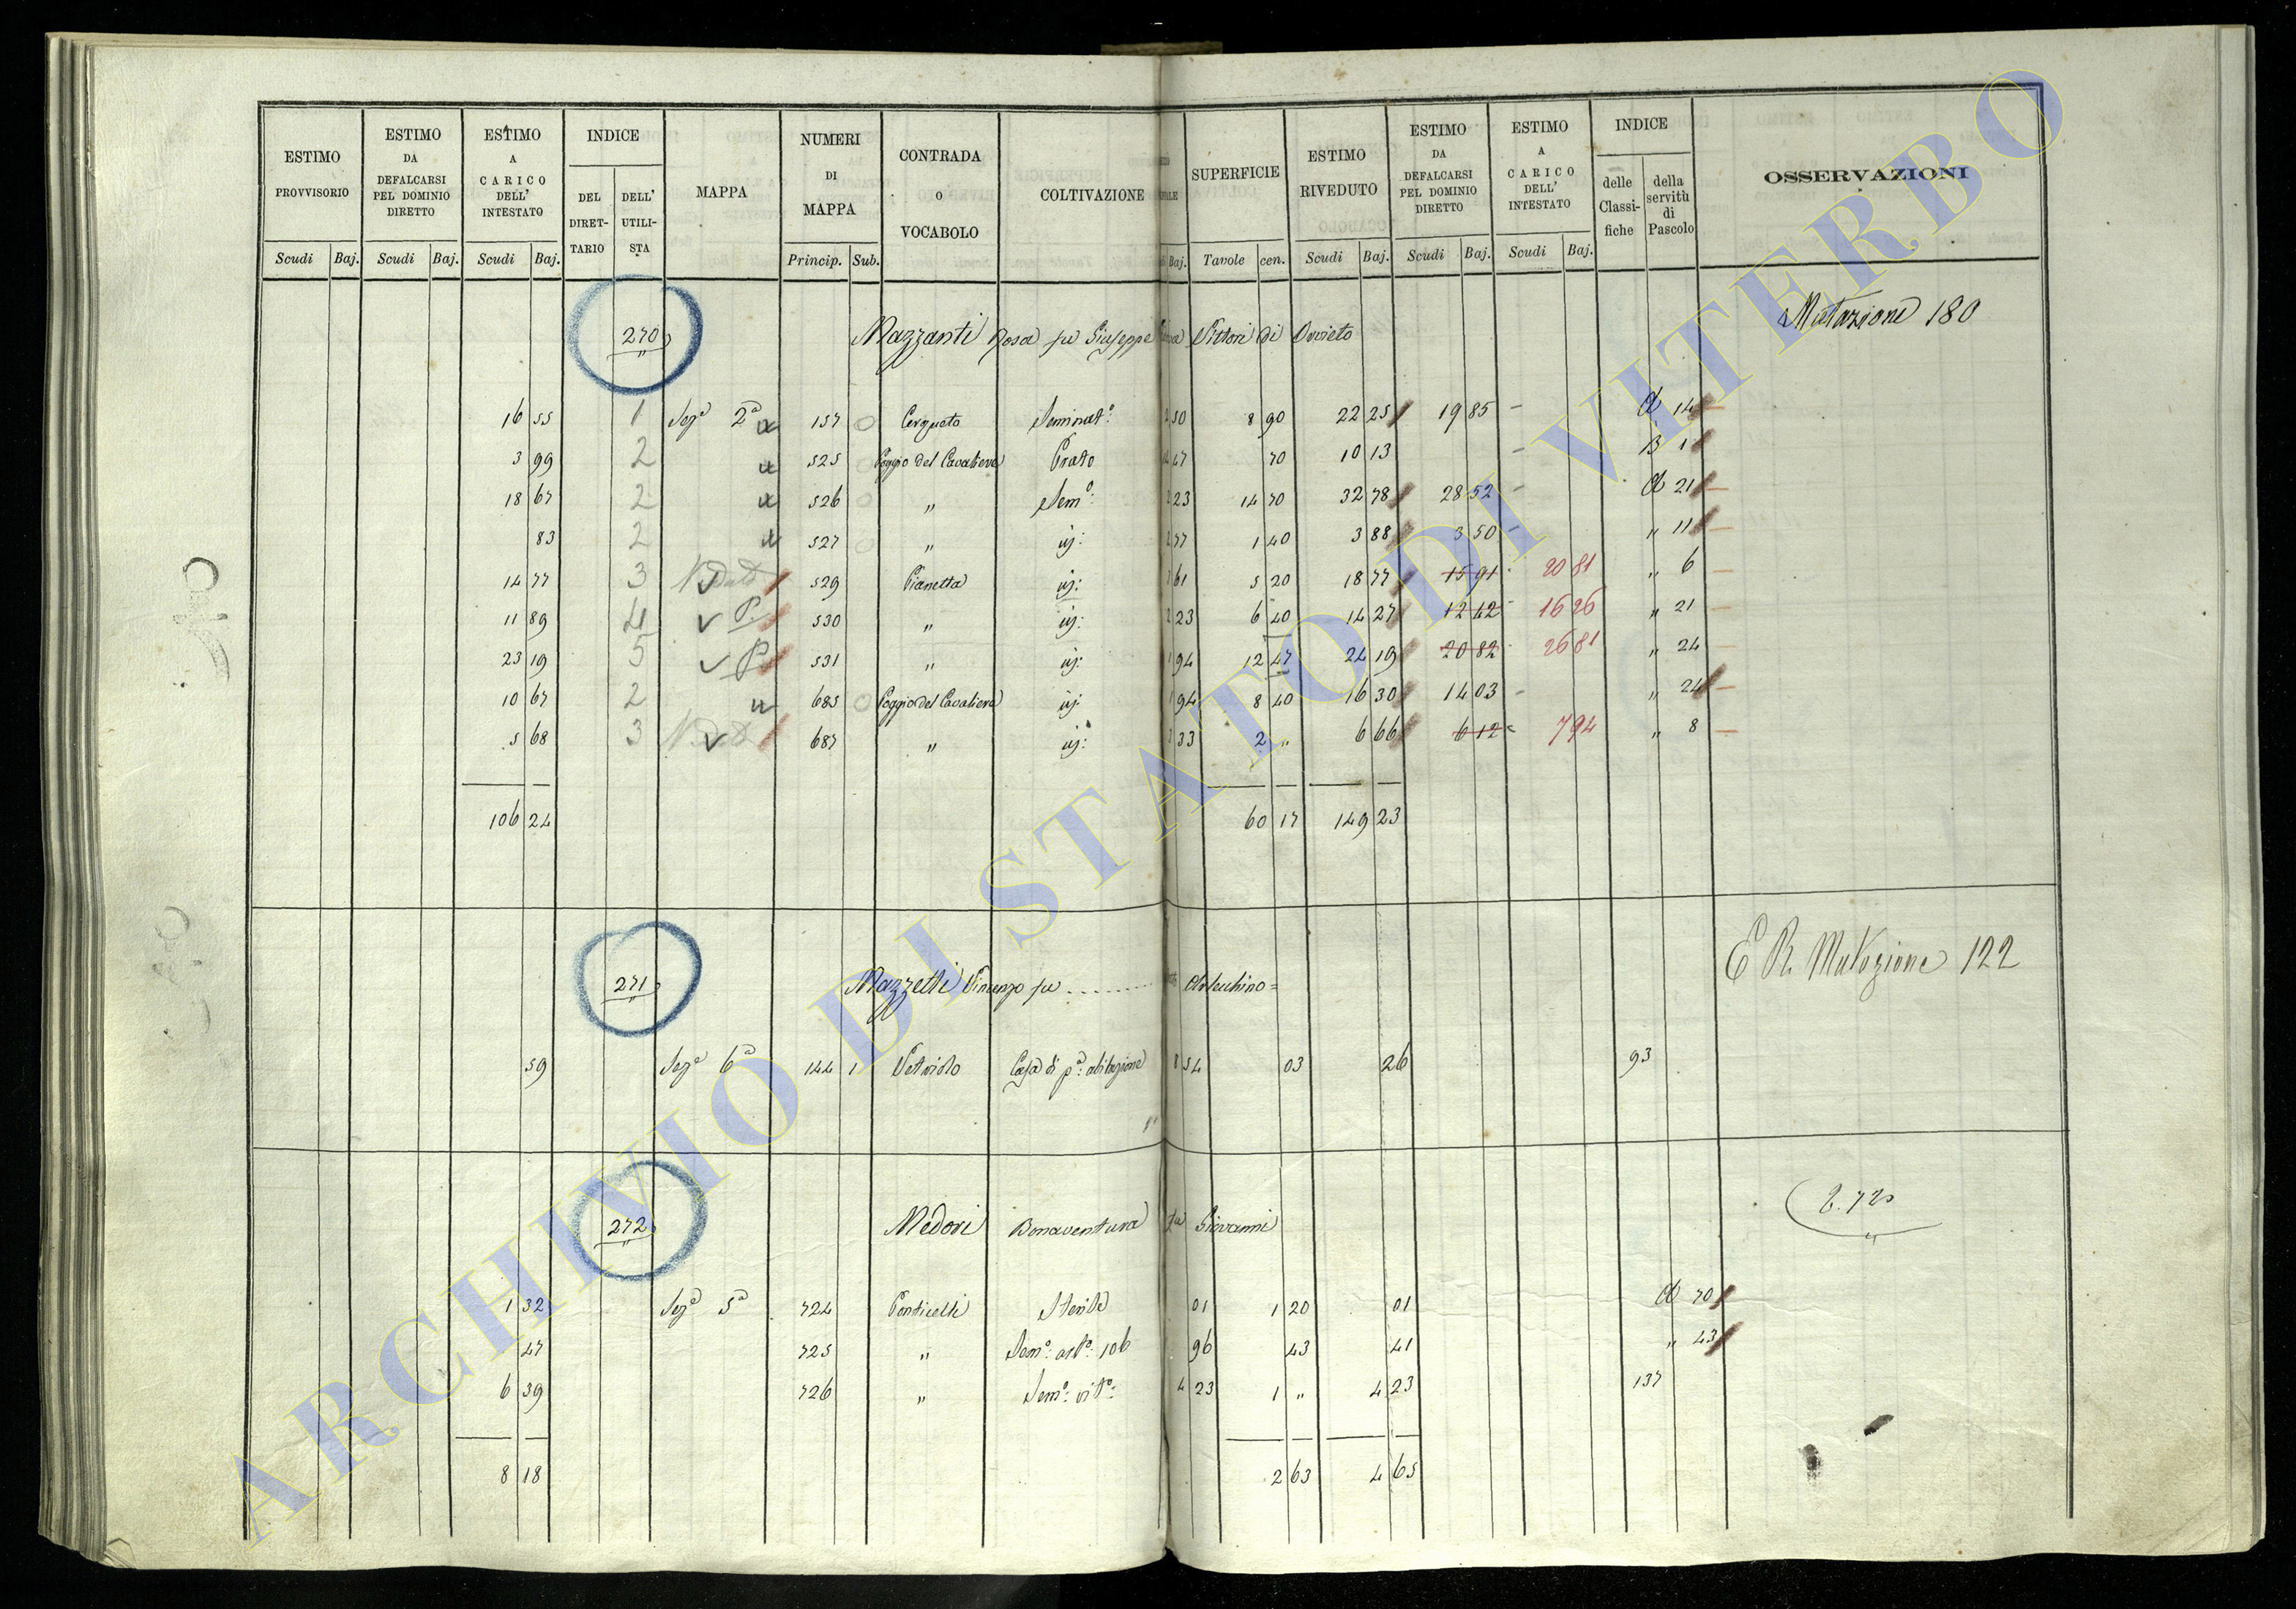 ESTIMO PROVVISORIO
Scudi Baj.
ESTIMO DA DEFALCARSI PEL DOMINIO DIRETTO
Scudi Baj.
ESTIMO A CARICO DELL' INTESTATO
Scudi Baj.
INDICE
DEL DIRET-TARIO
DELL' UTILI-STA
MAPPA
NUMERI DI MAPPA
Princip. Sub.
CONTRADA O VOCABOLO
COLTIVAZIONE
Baj.
SUPERFICIE
Tavole cen.
ESTIMO RIVEDUTO
Scudi Baj.
ESTIMO DA DEFALCARSI PEL DOMINIO DIRETTO
Scudi Baj.
ESTIMO A CARICO DELL' INTESTATO
Scudi Baj.
INDICE
delle Classi-fiche
della servitù di Pascolo
OSSERVAZIONI
270 Mazzanti Rosa fu Giuseppe Vittori di Orvieto Mutazione 180
16 55 1 Sezᵉ 2ª 157 Cerqueto Seminatº: 50 8 90 22 25 19 85 14
3 99 2 525 Poggio del Cavaliere Prato 47 70 10 13 B 1
18 67 2 526 " Semº: 23 14 70 32 78 28 52 21
83 2 527 " id: 77 1 40 3 88 3 50 " 11
14 77 3 529 Pianetta id: 61 5 20 18 77 15 91 20 81 " 6
11 89 4 P. 530 " id: 23 6 40 14 27 12 42 16 26 " 21
23 19 5 P. 531 " id: 94 12 47 24 19 20 82 26 81 " 24
10 67 2 685 Poggio del Cavaliere id 94 8 40 16 30 14 03 " 24
5 68 3 687 " id: 33 2 " 6 66 6 12 7 94 " 8
106 24 60 17 149 23
271 Mazzetti Vincenzo fu Mutazione 122
59 Sezᵉ 6ª 144 1 Vetriolo Casa di pª: abitazione 54 03 26 93
272 Medori Bonaventura fu Giovanni
1 32 Sezᵉ 5ª 724 Ponticelli Sterile 01 1 20 01 70
47 725 " Semº: artº: 106 96 43 41 " 43
6 39 726 " Semº: vitº: 4 23 1 " 4 23 137
8 18 2 63 4 65
ARCHIVIO DI STATO DI VITERBO